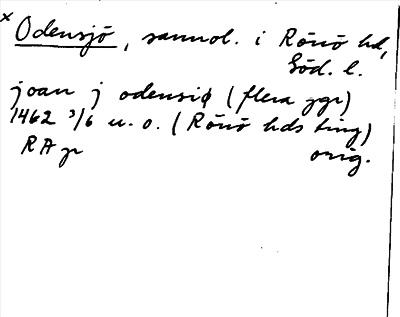 x Odensjö, sannol. i Rönö hd,
Söd. l.
joan j odensiø (flera ggr)
1462 3/6 u. o. (Rönö hds ting)
RA p orig.